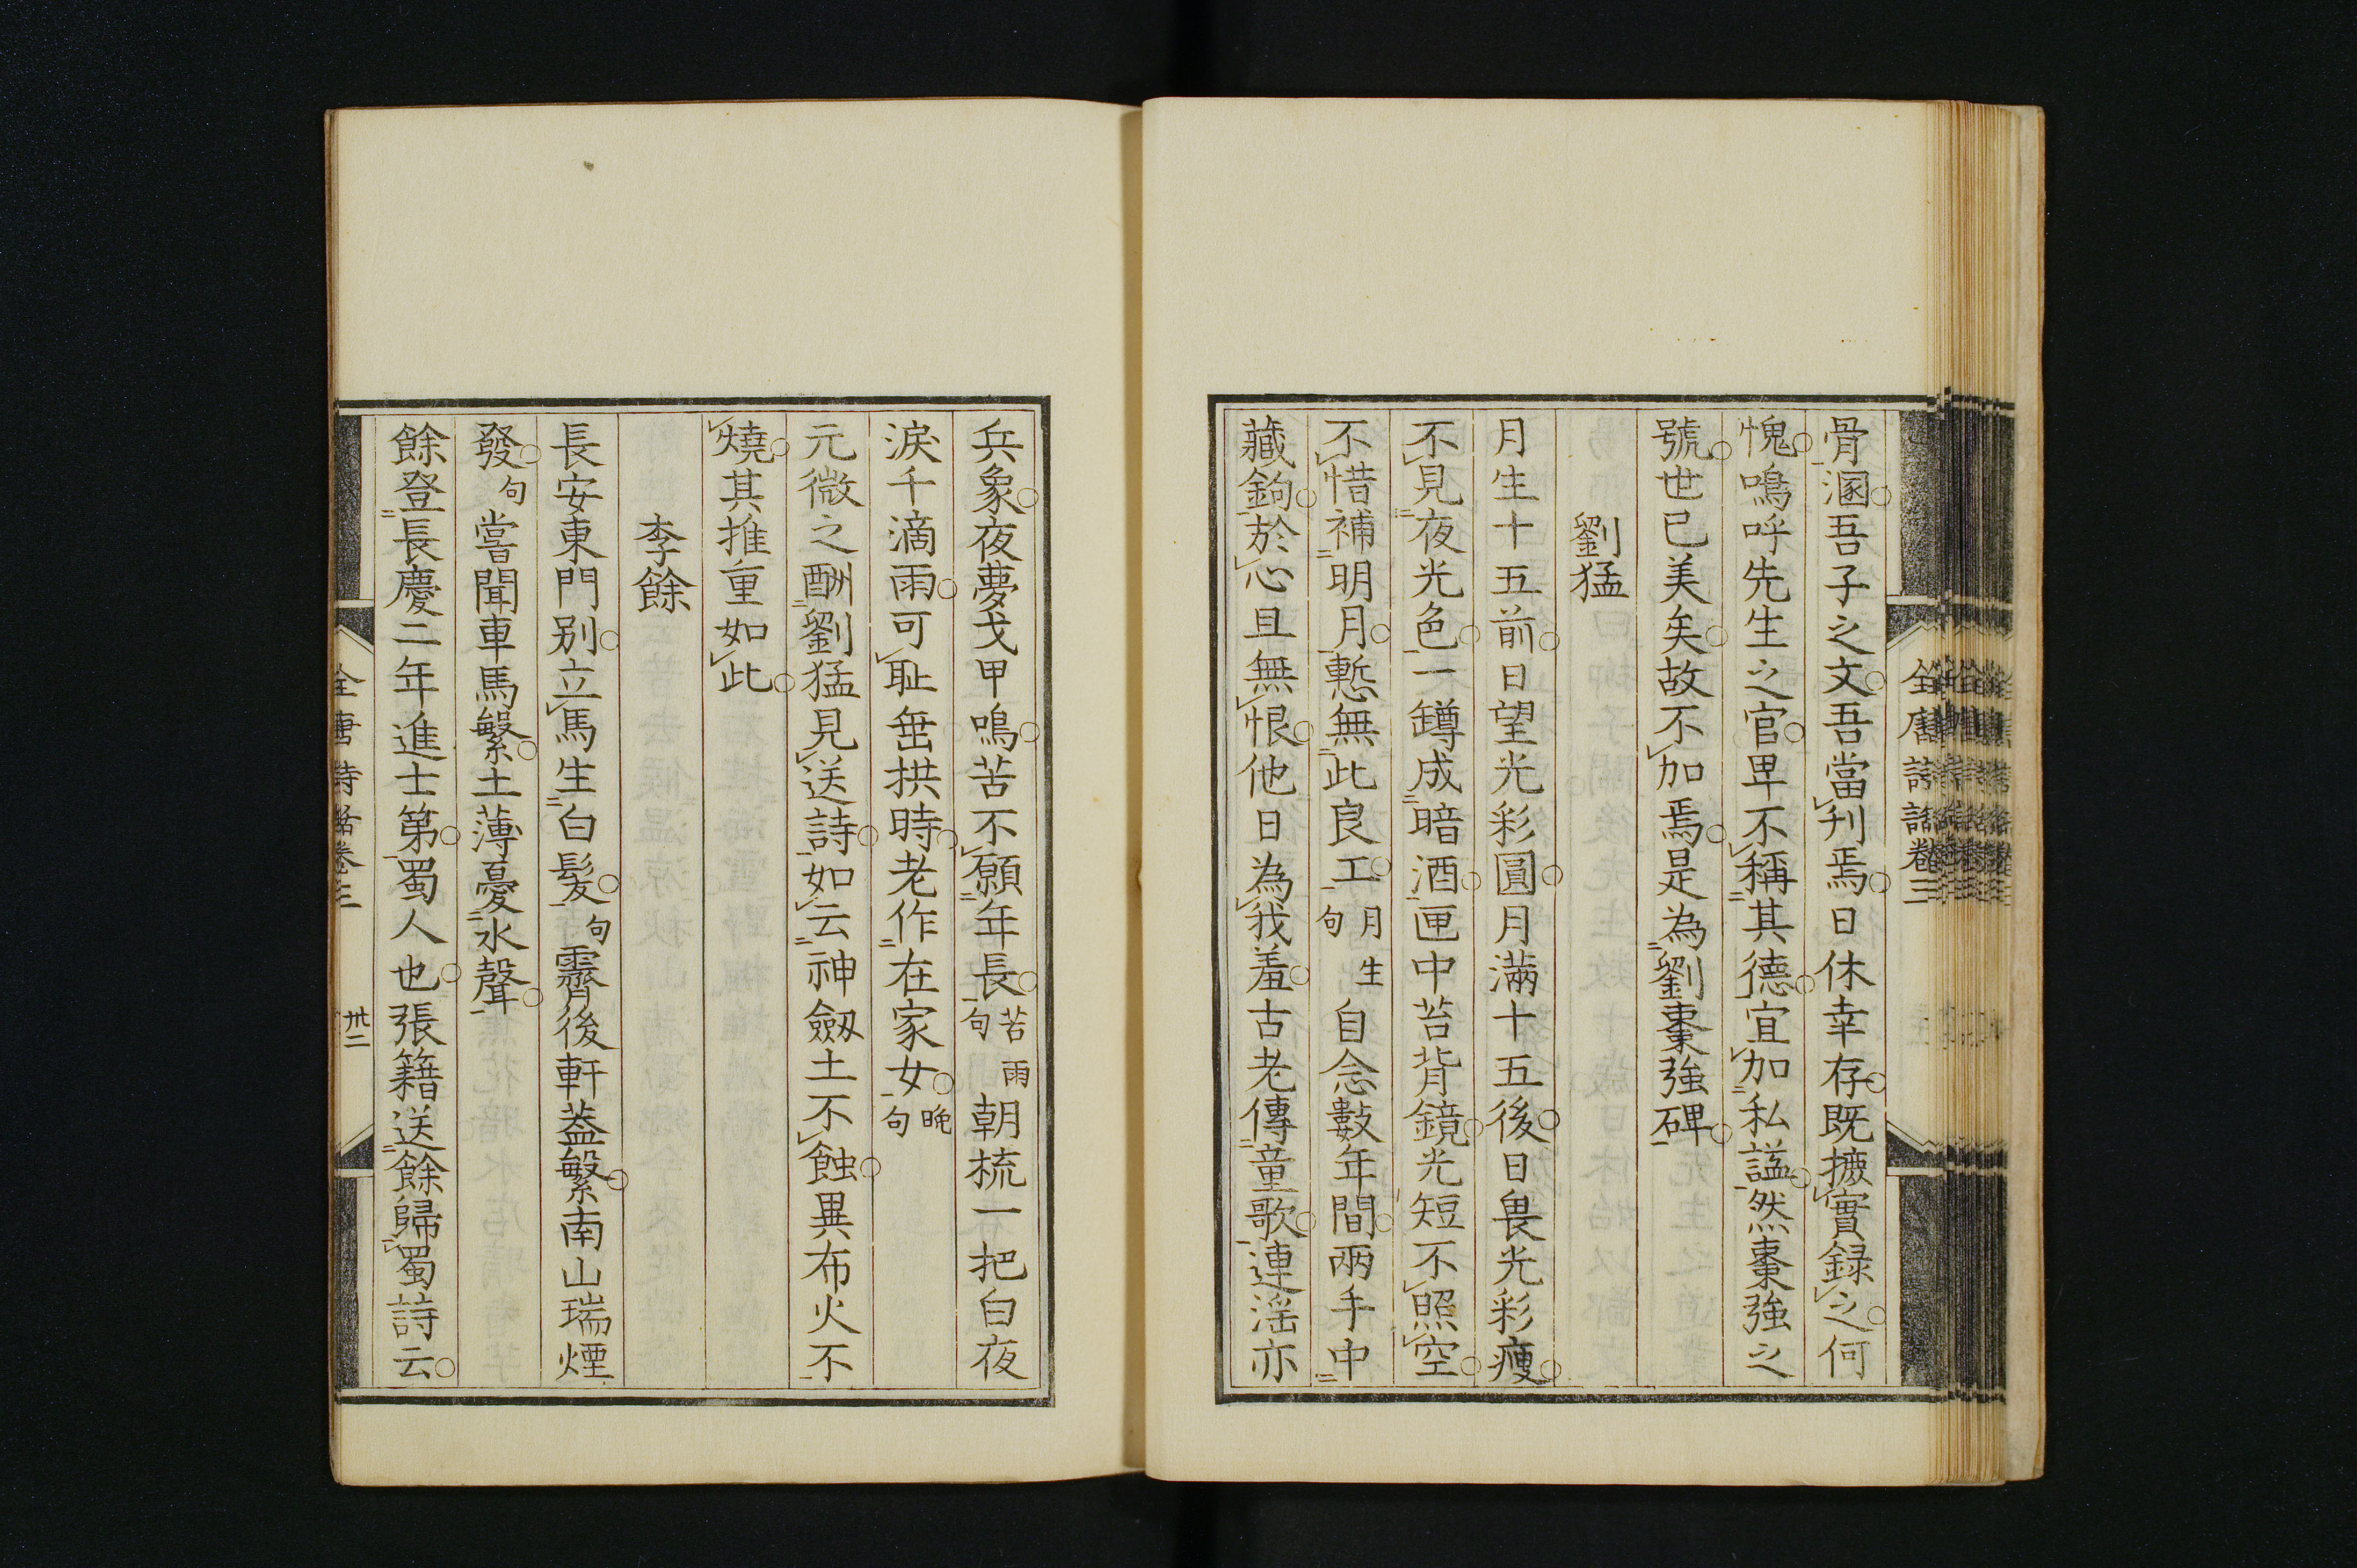 骨溷吾子之文吾當刋焉日休幸存既摭實録之何
愧嗚呼先生之官卑不稱其德宜加私謚然棗強之
號世已美矣故不加焉是為劉棗強碑
劉猛
月生十五前日望光彩圓月滿十五後日畏光彩瘦
不見夜光色一罇成暗酒匣中苔背鏡光短不照空
不惜補明月慙無此良工月生句自念數年間兩手中
藏鉤於心且無恨他日為我羞古老傳童歌連滛亦
兵象夜夢戈甲鳴苦不願年長苦雨句朝梳一把白夜
淚千滴雨可恥垂拱時老作在家女晩句
元微之酬劉猛見送詩如云神劔土不蝕異布火不
燒其推重如此
李餘
長安東門别立馬生白髮句霽後軒葢繁南山瑞煙
發句嘗聞車馬繁土薄憂水聲
餘登長慶二年進士第蜀人也張籍送餘歸蜀詩云
全唐詩話卷三
全唐詩話卷三
卅二